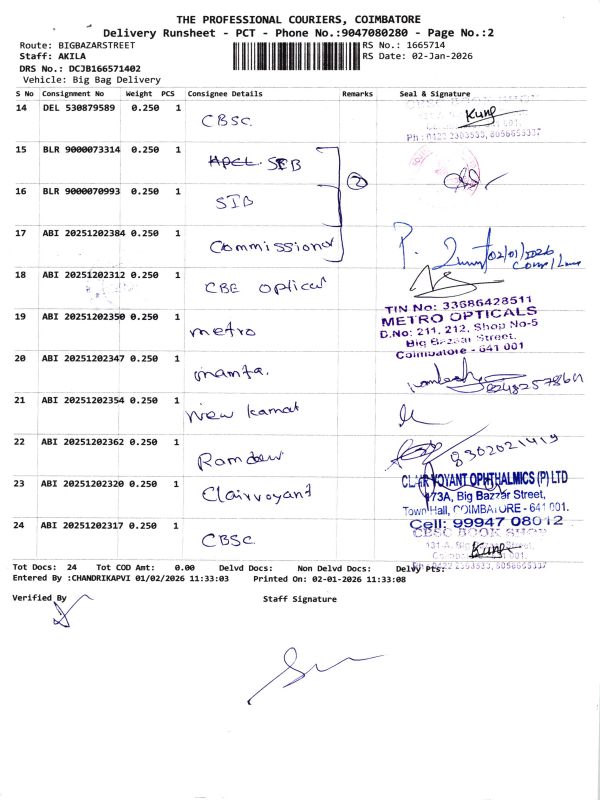 THE PROFESSIONAL COURIERS, COIMBATORE
Delivery Runsheet - PCT - Phone No.:9047080280 - Page No.:2
Route: BIGBAZARSTREET
RS No.: 1665714
Staff: AKILA
RS Date: 02-Jan-2026
DRS No.: DCJB166571402
Vehicle: Big Bag Delivery
S No Consignment No Weight PCS Consignee Details Remarks Seal & Signature
14 DEL 530879589 0.250 1 CBSC
Ph : 0422 2303533, 8056655337
15 BLR 9000073314 0.250 1 SIB
2
16 BLR 9000070993 0.250 1 SIB
17 ABI 20251202384 0.250 1 Commissioner
02/01/2026
18 ABI 20251202312 0.250 1 CBE optical
19 ABI 20251202350 0.250 1 metro
TIN No: 33686428511
METRO OPTICALS
D.No: 211, 212, Shop No-5
Big Bazaar Street,
Coimbatore - 641 001
20 ABI 20251202347 0.250 1 mamta.
21 ABI 20251202354 0.250 1 New Kamal
22 ABI 20251202362 0.250 1 Ramdev
8302021419
23 ABI 20251202320 0.250 1 Clairvoyant
CLAIRVOYANT OPHTHALMICS (P) LTD
173A, Big Bazzar Street,
Town Hall, COIMBATORE - 641 001.
Cell: 99947 08012
24 ABI 20251202317 0.250 1 CBSC
CBSC BOOK SHOP
Tot Docs: 24 Tot COD Amt: 0.00 Delvd Docs: Non Delvd Docs: Delvy Pts:
Entered By :CHANDRIKAPVI 01/02/2026 11:33:03 Printed On: 02-01-2026 11:33:08
Verified By Staff Signature